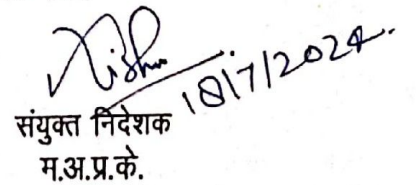 18/7/2024.
संयुक्त निदेशक
म.अ.प्र.के.